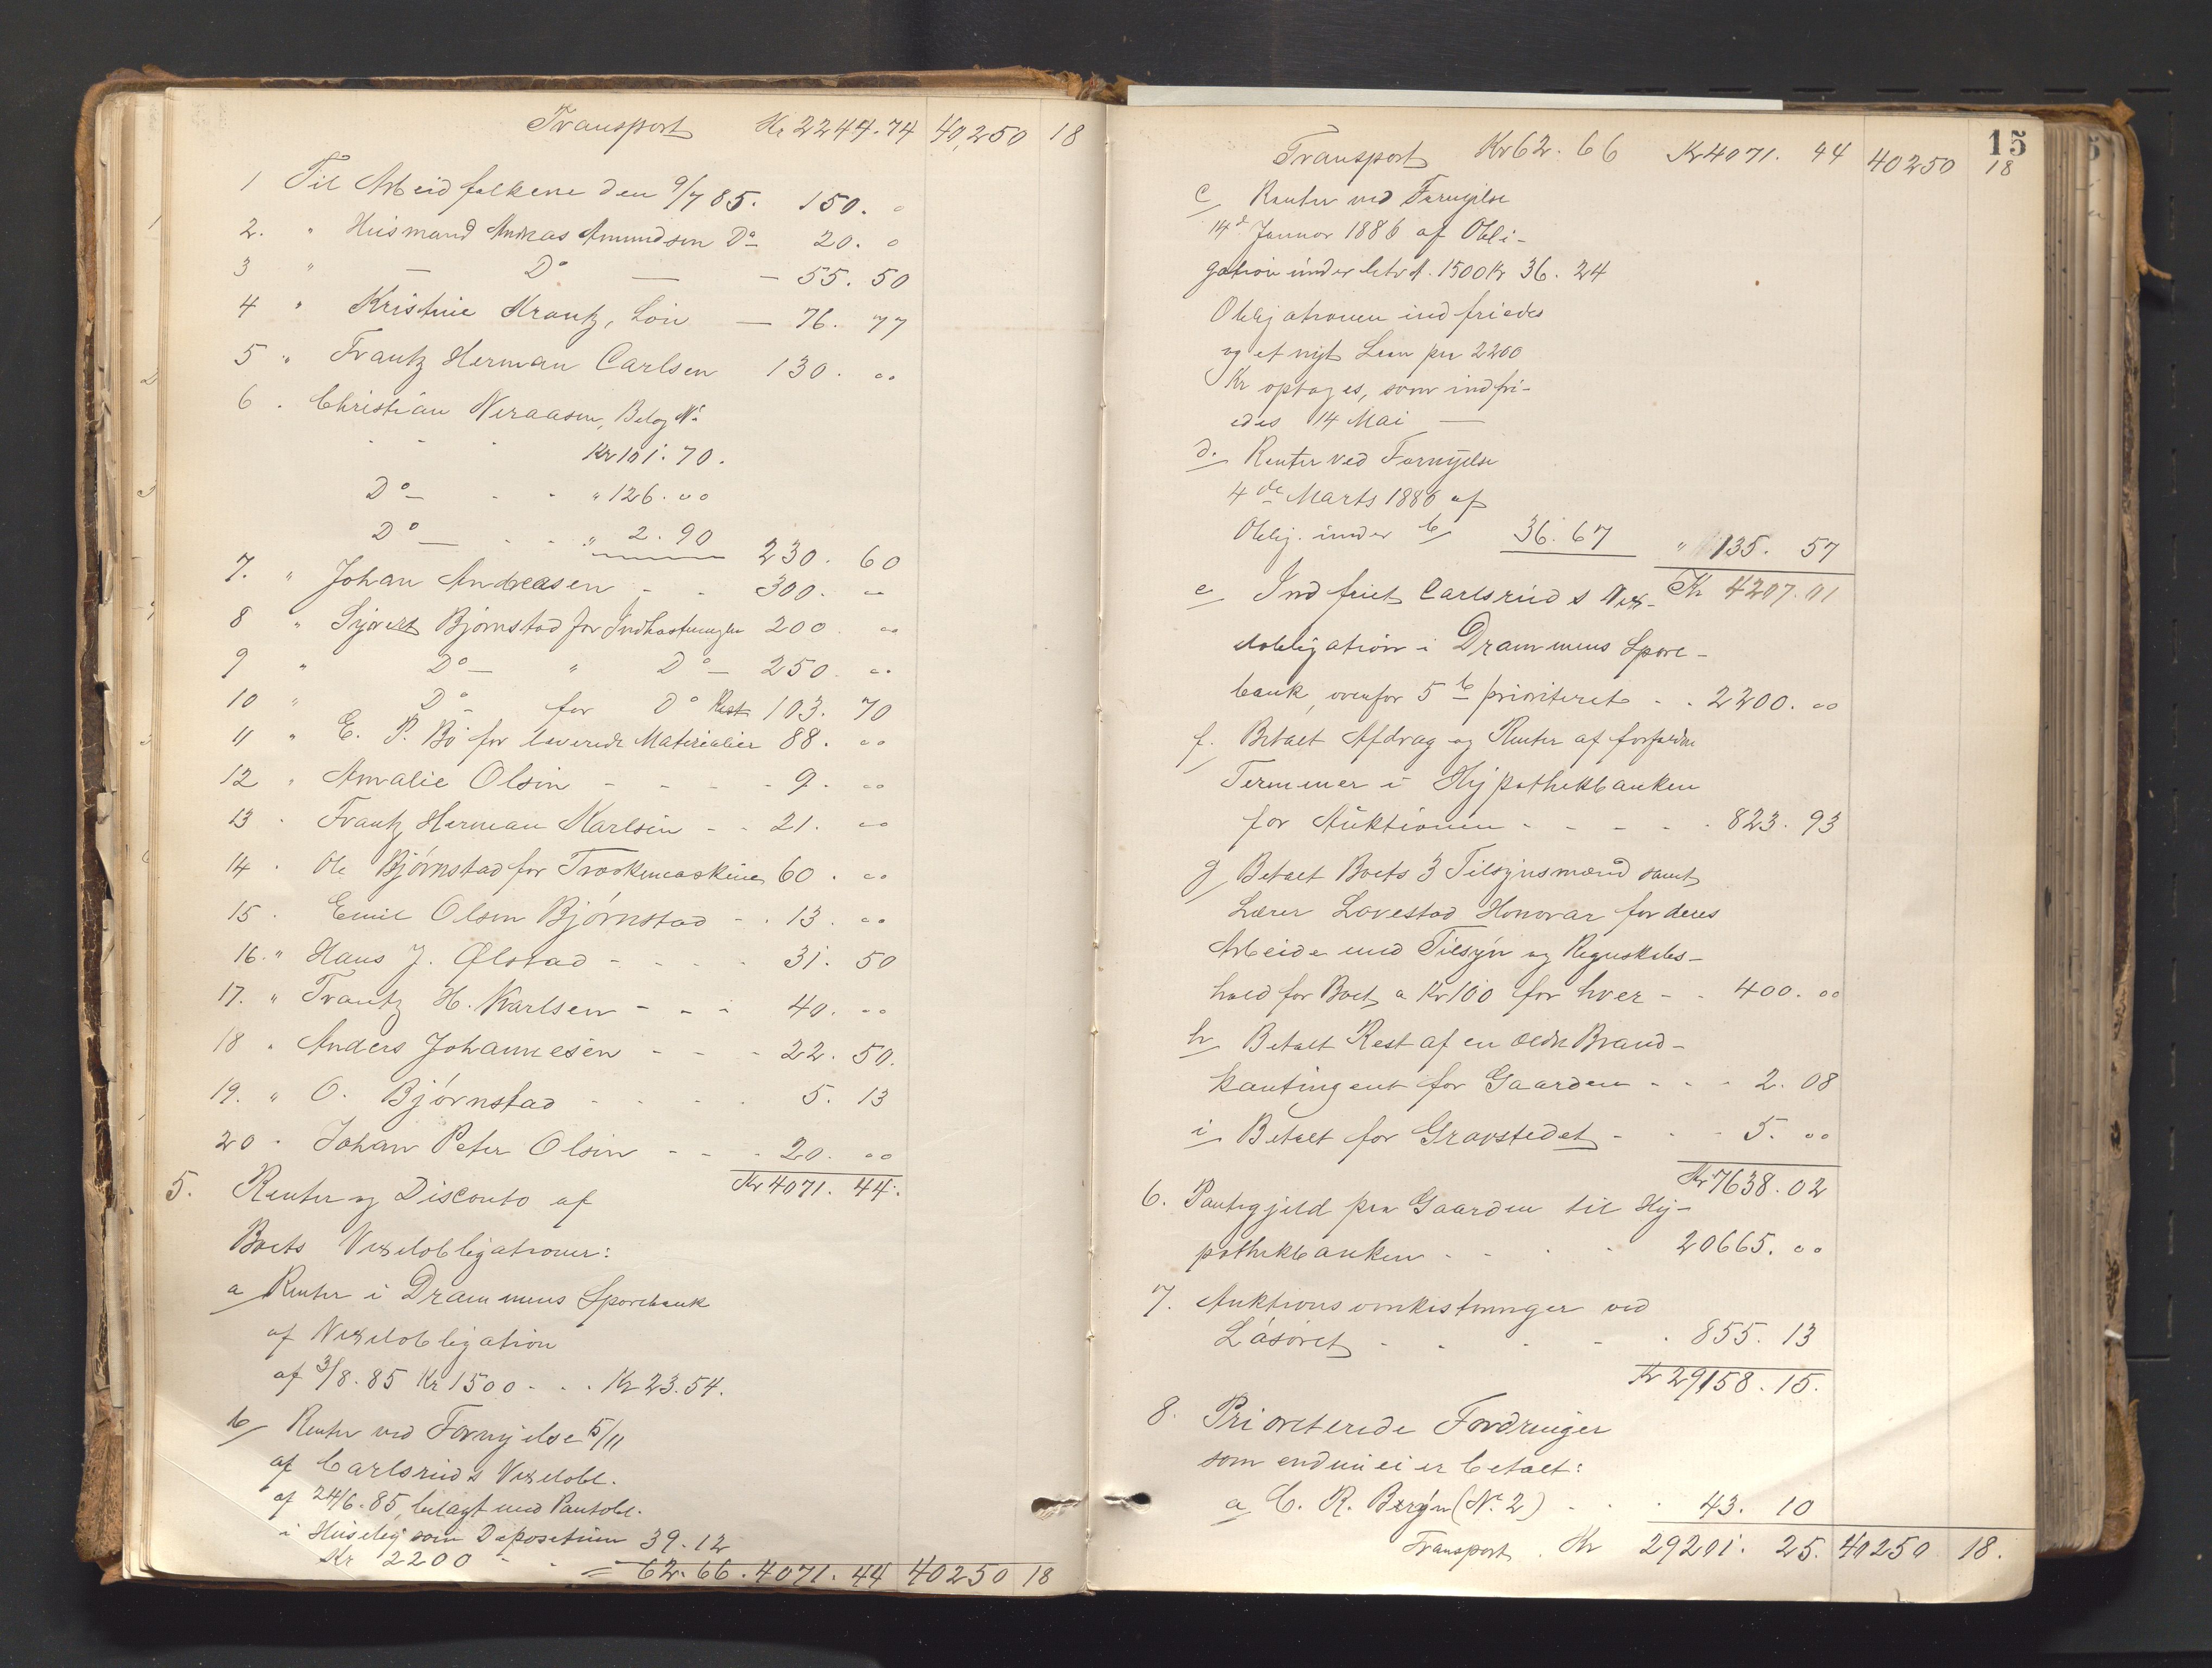 Transport Kr 2244.74 40,250 18
1 Til Arbeidfolkene den 9/7 85. 150. "
2. " Husmand Andreas Amundsen Do 20. "
3 " — Do — — 55. 50
4 " Kristine Krantz, Lön — 76. 77
5 " Frantz Herman Carlsen 130. "
6 . Christian Neraasen, Belög No
Kr 101. 70.
Do — " 126. 00
Do — " 2. 90
230. 60
7. " Johan Andreasen - - 300. "
8 " Sivert Bjørnstad for Indhøstningen 200 "
9 " Do — " Do — 250. "
10 " Do for Do Rest 103. 70
11 " E. P. Bö for leverede Materialier 88. "
12 " Amalie Olsen - - - - 9. "
13 . Frantz Herman Karlsen - - 21. "
14 . Ole Bjørnstad for Træskemaskine 60. "
15 . Emil Olsen Bjørnstad - . 13. "
16. " Hans J. Ølstad - - - - 31. 50
17. " Frantz H. Karlsen - - - 40. "
18 . Anders Johannesen - - - 22. 50.
19. " O. Bjørnstad - - - - 5. 13
20 . Johan Peter Olsen - - - 20. "
Kr 4071. 44.
5. Renter og Disconto af
Boets Vexelobligationer:
a/ Renter i Drammens Sparebank
af Vexelobligation
af 3/8. 85 Kr 1500 - . . Kr 23. 54.
b/ Renter ved Fornyelse 5/11
af Carlsruds Vexelobl.
af 24/6. 85, belagt med Pantobl.
i Huseby som Depositum 39. 12
Kr 2200 - - = 62. 66. 4071. 44 40250 18
15
Transport Kr 62. 66 Kr 4071. 44 40250 18
c/ Renter ved Fornyelse
14d Januar 1886 af Obli-
gation under 1500 Kr 36. 24
Obligationen indfriedes
og et nyt Laan paa 2200
Kr optoges, som indfri-
edes 14 Mai —
d. Renter ved Fornyelse
4de Marts 1886 af
Oblig. under b/ 36. 67 " 135. 57
Kr 4207. 01
e/ Indfriet Carlsruds Vex-
elobligation i Drammens Spare-
bank, ovenfor 5 b prioriteret - . 2200. 00
f. Betalt Afdrag og Renter af forfaldne
Terminer i Hypothekbanken
for Auktionen - - - - . 823. 93
g/ Betalt Boets 3 Tilsynsmænd samt
Lærer Lovestad Honorar for deres
Arbeide med Tilsyn og Regnskabs-
hold for Boet a Kr 100 for hver - - 400. 00
h/ Betalt Rest af en ældre Brand-
kontingent for Gaarden - - - 2. 08
i/ Betalt for Gravstedet - - - 5. 00
Kr 7638. 02
6. Pantegjeld paa Gaarden til Hy-
pothekbanken - - . . 20665. 00
7. Auktionsomkostninger ved
Løsøret - - - - . 855. 13
Kr 29158. 15.
8. Prioriterede Fordringer
som endnu ei er betalt:
a C. R. Bergen (No 2) - . . 43. 10
Transport . Kr 29201. 25. 40250 18.